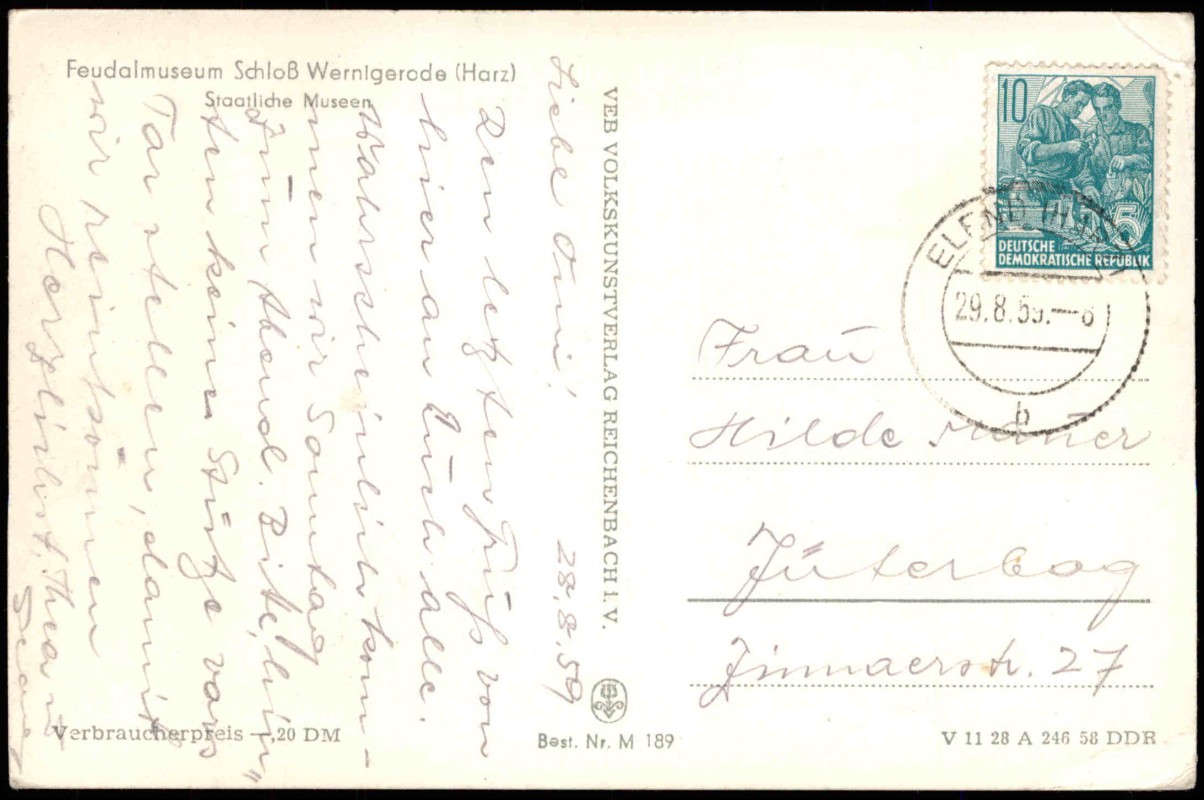 Feudalmuseum Schloß Wernigerode (Harz)
Staatliche Museen
Liebe Omi! 28.8.59
Den letzten Gruß von
hier an Euch alle.
Wahrscheinlich kom-
men wir Sonntag
zum Abend. Bitte, hin-
ten keine Stütze vors
Tor stellen, damit
wir reinkönnen
Herzlichst, Thea u
VEB VOLKSKUNSTVERLAG REICHENBACH i. V.
10
5
DEUTSCHE
DEMOKRATISCHE REPUBLIK
ELEND (HARZ)
29.8.59.—8
b
Frau
Hilde Mauer
Jüterbog
Zinnaerstr. 27
Verbraucherpreis —,20 DM
Best. Nr. M 189
V 11 28 A 246 58 DDR